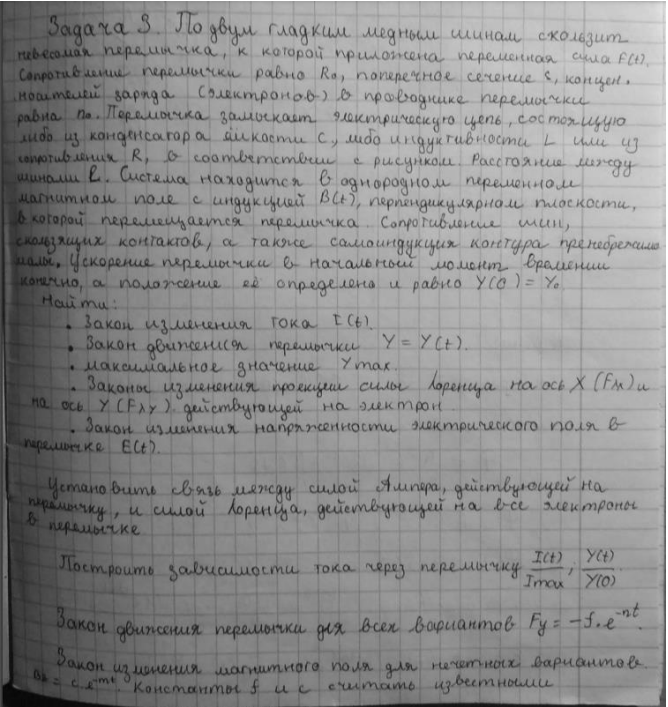 Задача 3. По двум гладким медным шинам скользит
невесомая перемычка, к которой приложена переменная сила F(t).
Сопротивление перемычки равно R₀, поперечное сечение S, концен.
носителей заряда (электронов) в проводнике перемычки
равна n₀. Перемычка замыкает электрическую цепь, состоящую
либо из конденсатора ёмкости C, либо индуктивности L или из
сопротивления R, в соответствии с рисунком. Расстояние между
шинами l. Система находится в однородном переменном
магнитном поле с индукцией B(t), перпендикулярном плоскости,
в которой перемещается перемычка. Сопротивление шин,
скользящих контактов, а также самоиндукция контура пренебрежимо
малы. Ускорение перемычки в начальный момент времени
конечно, а положение её определено и равно Y(0) = Y₀
Найти:
• Закон изменения тока I(t).
• Закон движения перемычки Y = Y(t).
• максимальное значение Ymax.
• Законы изменения проекций силы Лоренца на ось X (Fлx) и
на ось Y (Fлy). действующей на электрон.
• Закон изменения напряженности электрического поля в
перемычке E(t).
Установить связь между силой Ампера, действующей на
перемычку, и силой Лоренца, действующей на все электроны
в перемычке
Построить зависимости тока через перемычку I(t)/Imax; Y(t)/Y(0).
Закон движения перемычки для всех вариантов Fy = -f·e^-nt.
Закон изменения магнитного поля для нечетных вариантов.
= c·e^-mt. Константы f и c считать известными